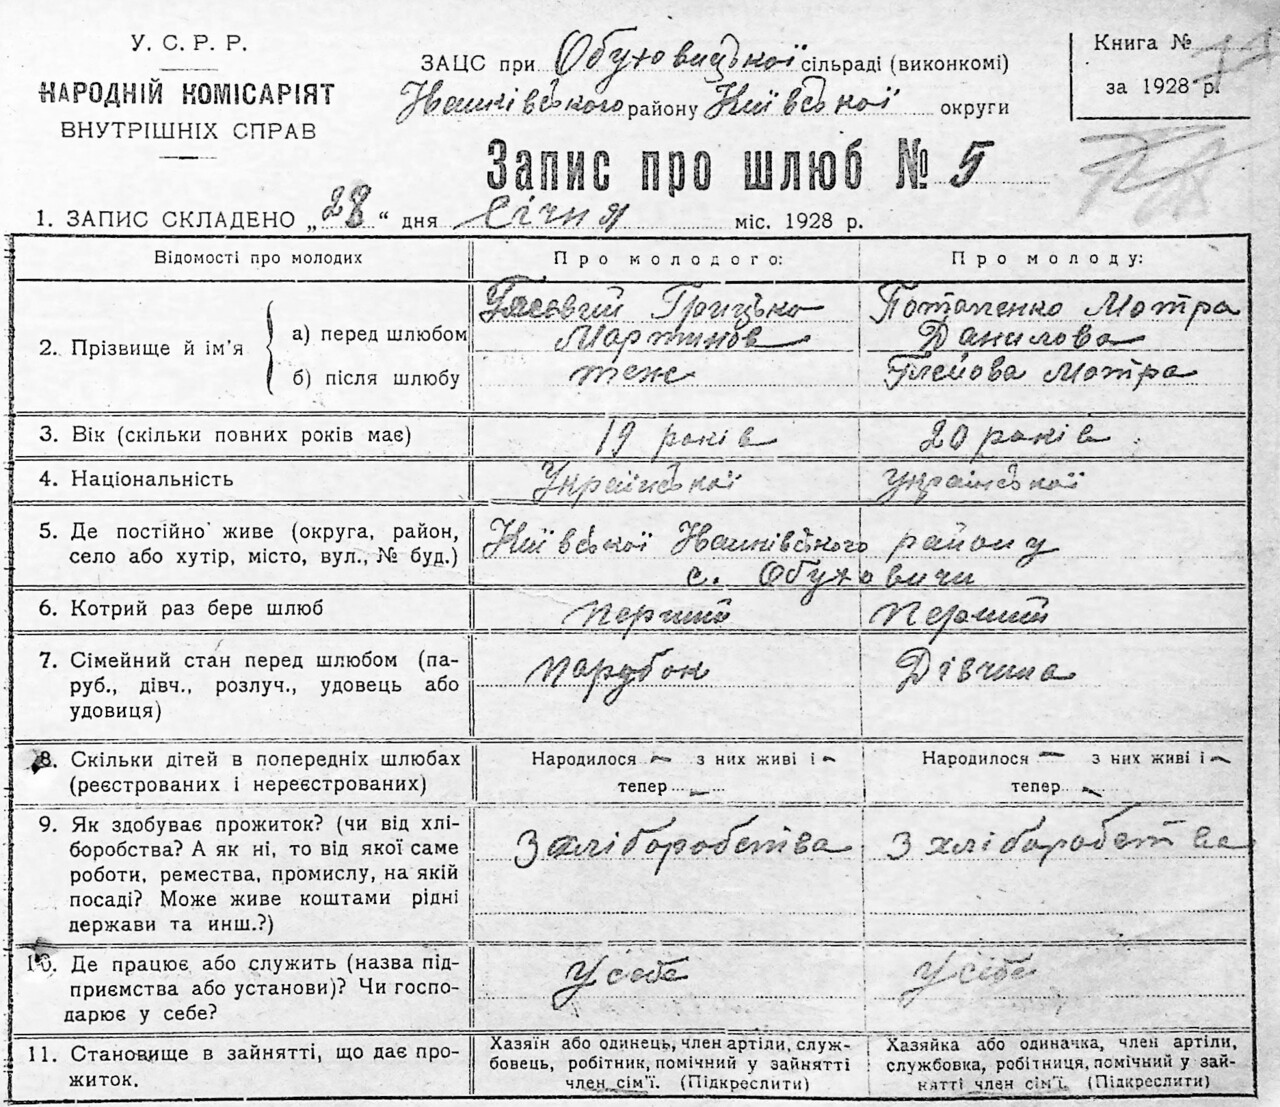 У. С. Р. Р.
НАРОДНІЙ КОМІСАРІЯТ
ВНУТРІШНІХ СПРАВ
ЗАЦС при Обуховицької сільраді (виконкомі)
Іванківського району Київської округи
Книга №
за 1928 р.
Запис про шлюб № 5
1. ЗАПИС СКЛАДЕНО „28“ дня січня міс. 1928 р.
Відомості про молодих
Про молодого:
Про молоду:
2. Прізвище й ім'я
а) перед шлюбом
Грицько
Мартинов
Потапенко Мотра
Данилова
б) після шлюбу
теж
Мотра
3. Вік (скільки повних років має)
19 років
20 років
4. Національність
Української
української
5. Де постійно живе (округа, район,
село або хутір, місто, вул., № буд.)
Київської Іванківського району
с. Обуховичи
6. Котрий раз бере шлюб
перший
перший
7. Сімейний стан перед шлюбом (па-
руб., дівч., розлуч., удовець або
удовиця)
парубок
Дівчина
8. Скільки дітей в попередніх шлюбах
(реєстрованих і нереєстрованих)
Народилося — з них живі і —
тепер —
Народилося — з них живі і —
тепер —
9. Як здобуває прожиток? (чи від хлі-
боробства? А як ні, то від якої саме
роботи, ремества, промислу, на якій
посаді? Може живе коштами рідні
держави та инш.?)
З хліборобства
З хліборобства
10. Де працює або служить (назва під-
приємства або установи)? Чи госпо-
дарює у себе?
У себе
У сібе
11. Становище в зайнятті, що дає про-
житок.
Хазяїн або одинець, член артіли, служ-
бовець, робітник, помічний у зайнятті
член сім'ї. (Підкреслити)
Хазяйка або одиначка, член артіли,
службовка, робітниця, помічна у зай-
нятті член сім'ї. (Підкреслити)